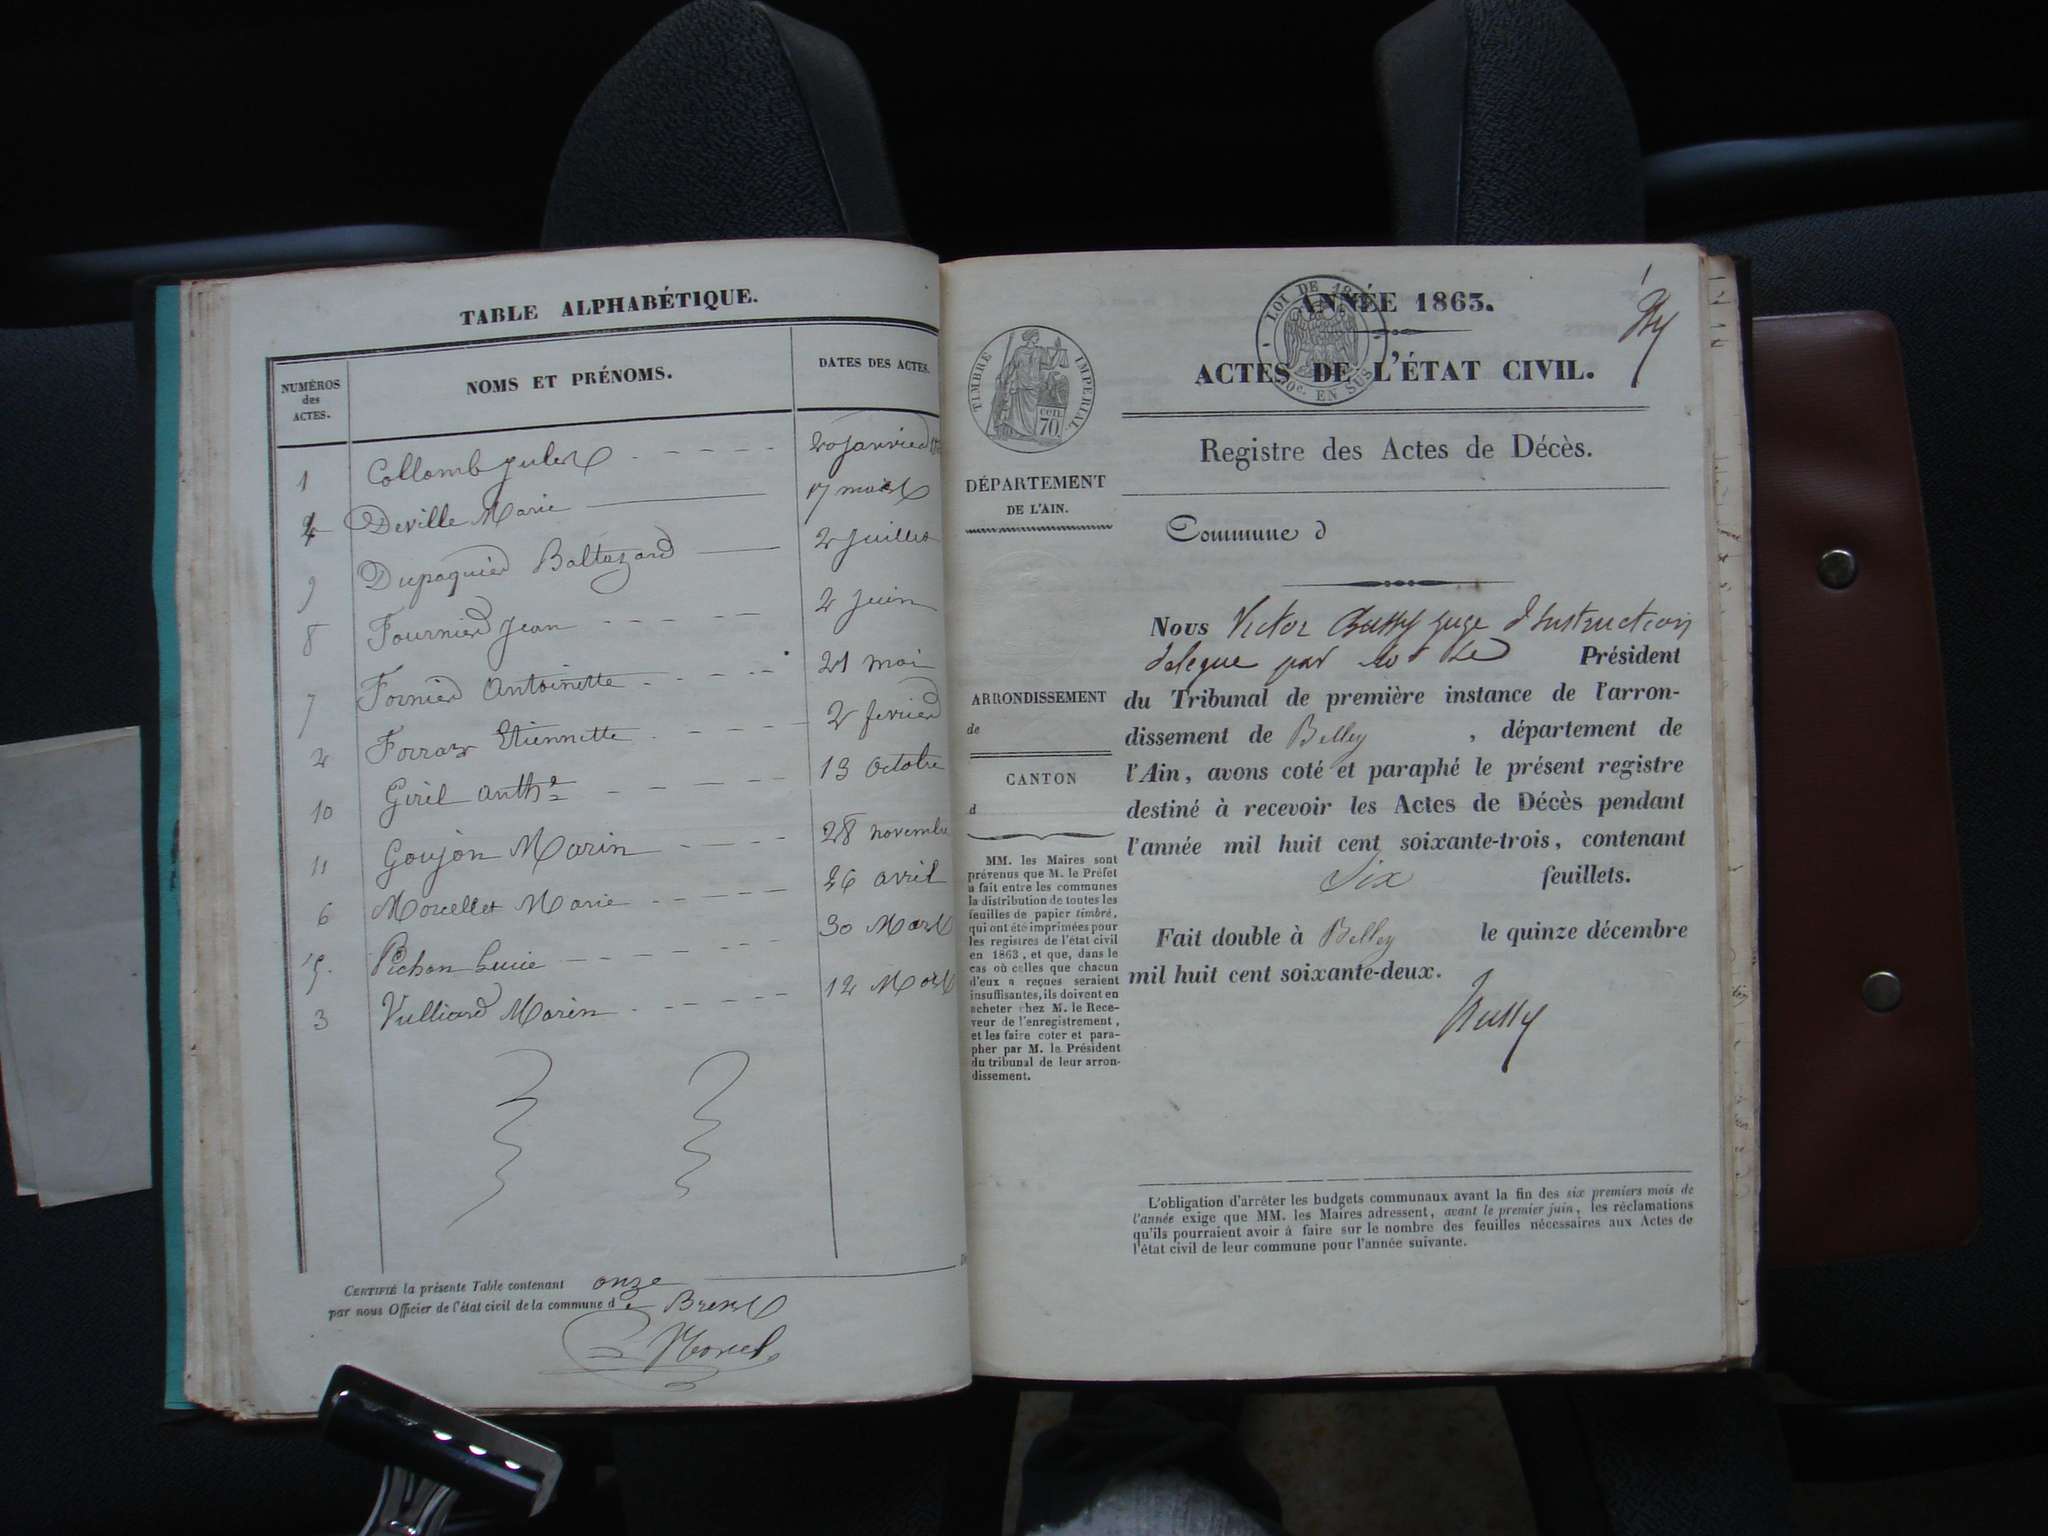 TABLE ALPHABÉTIQUE.
NUMÉROS des ACTES. NOMS ET PRÉNOMS. DATES DES ACTES.
1 Collomb Jules 20 janvier
4 Deville Marie 17 mars
9 Dupaquier Baltazard 2 Juillet
8 Fournier Jean 2 Juin
7 Fornier Antoinette 21 mai
2 Forraz Etiennette 2 fevrier
10 Giril anth.e 13 octobre
11 Goujon Marin 28 novembre
6 Morcellet Marie 26 avril
5 Pichon Lucie 30 Mars
3 Vulliard Marin 12 Mars
CERTIFIÉ la présente Table contenant onze
par nous Officier de l'état civil de la commune de Brens
Morcel
ANNÉE 1863.
LOI DE
EN SUS
ACTES DE L'ÉTAT CIVIL.
TIMBRE IMPÉRIAL
cen. 70
Registre des Actes de Décès.
DÉPARTEMENT
DE L'AIN.
Commune d
ARRONDISSEMENT
de
CANTON
d
MM. les Maires sont
prévenus que M. le Préfet
a fait entre les communes
la distribution de toutes les
feuilles de papier timbré,
qui ont été imprimées pour
les registres de l'état civil
en 1863, et que, dans le
cas où celles que chacun
d'eux a reçues seraient
insuffisantes, ils doivent en
acheter chez M. le Rece-
veur de l'enregistrement,
et les faire coter et para-
pher par M. le Président
du tribunal de leur arron-
dissement.
Nous Victor Bussy juge d'Instruction
délégué par le Président
du Tribunal de première instance de l'arron-
dissement de Belley, département de
l'Ain, avons coté et paraphé le présent registre
destiné à recevoir les Actes de Décès pendant
l'année mil huit cent soixante-trois, contenant
Six feuillets.
Fait double à Belley le quinze décembre
mil huit cent soixante-deux.
Bussy
L'obligation d'arrêter les budgets communaux avant la fin des six premiers mois de
l'année exige que MM. les Maires adressent, avant le premier juin, les réclamations
qu'ils pourraient avoir à faire sur le nombre des feuilles nécessaires aux Actes de
l'état civil de leur commune pour l'année suivante.